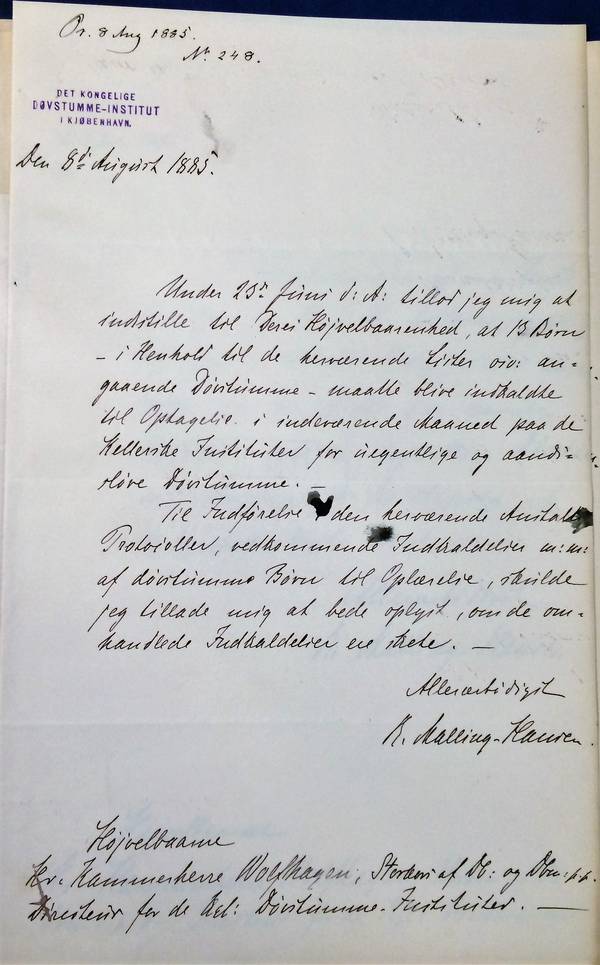 Pr. 8 Aug 1885.
Nr. 248.
DET KONGELIGE
DØVSTUMME-INSTITUT
I KJØBENHAVN.
Den 8de August 1885.
Under 23de Juni d: A: tillod jeg mig at
indstille til Deres Højvelbaarenhed, at 13 Børn
– i Henhold til de herværende Lister over an-
gaaende Døvstumme – maatte blive indkaldte
til Optagelse i indeværende Maaned paa de
Kellerske Instituter for uegentlige og aands-
sløve Døvstumme. –
Til Indførelse i den herværende Anstalts
Protocoller, vedkommende Indkaldelser m: m:
af døvstumme Børn til Oplærelse, skulde
jeg tillade mig at bede oplyst, om de om-
handlede Indkaldelser ere skete. –
Allerærbødigst
R. Malling-Hansen.
Højvelbaarne
Hr. Kammerherre Wolfhagen, Storkors af Db: og Dbm: p.p.
Directeur for de kgl: Døvstumme-Instituter. –